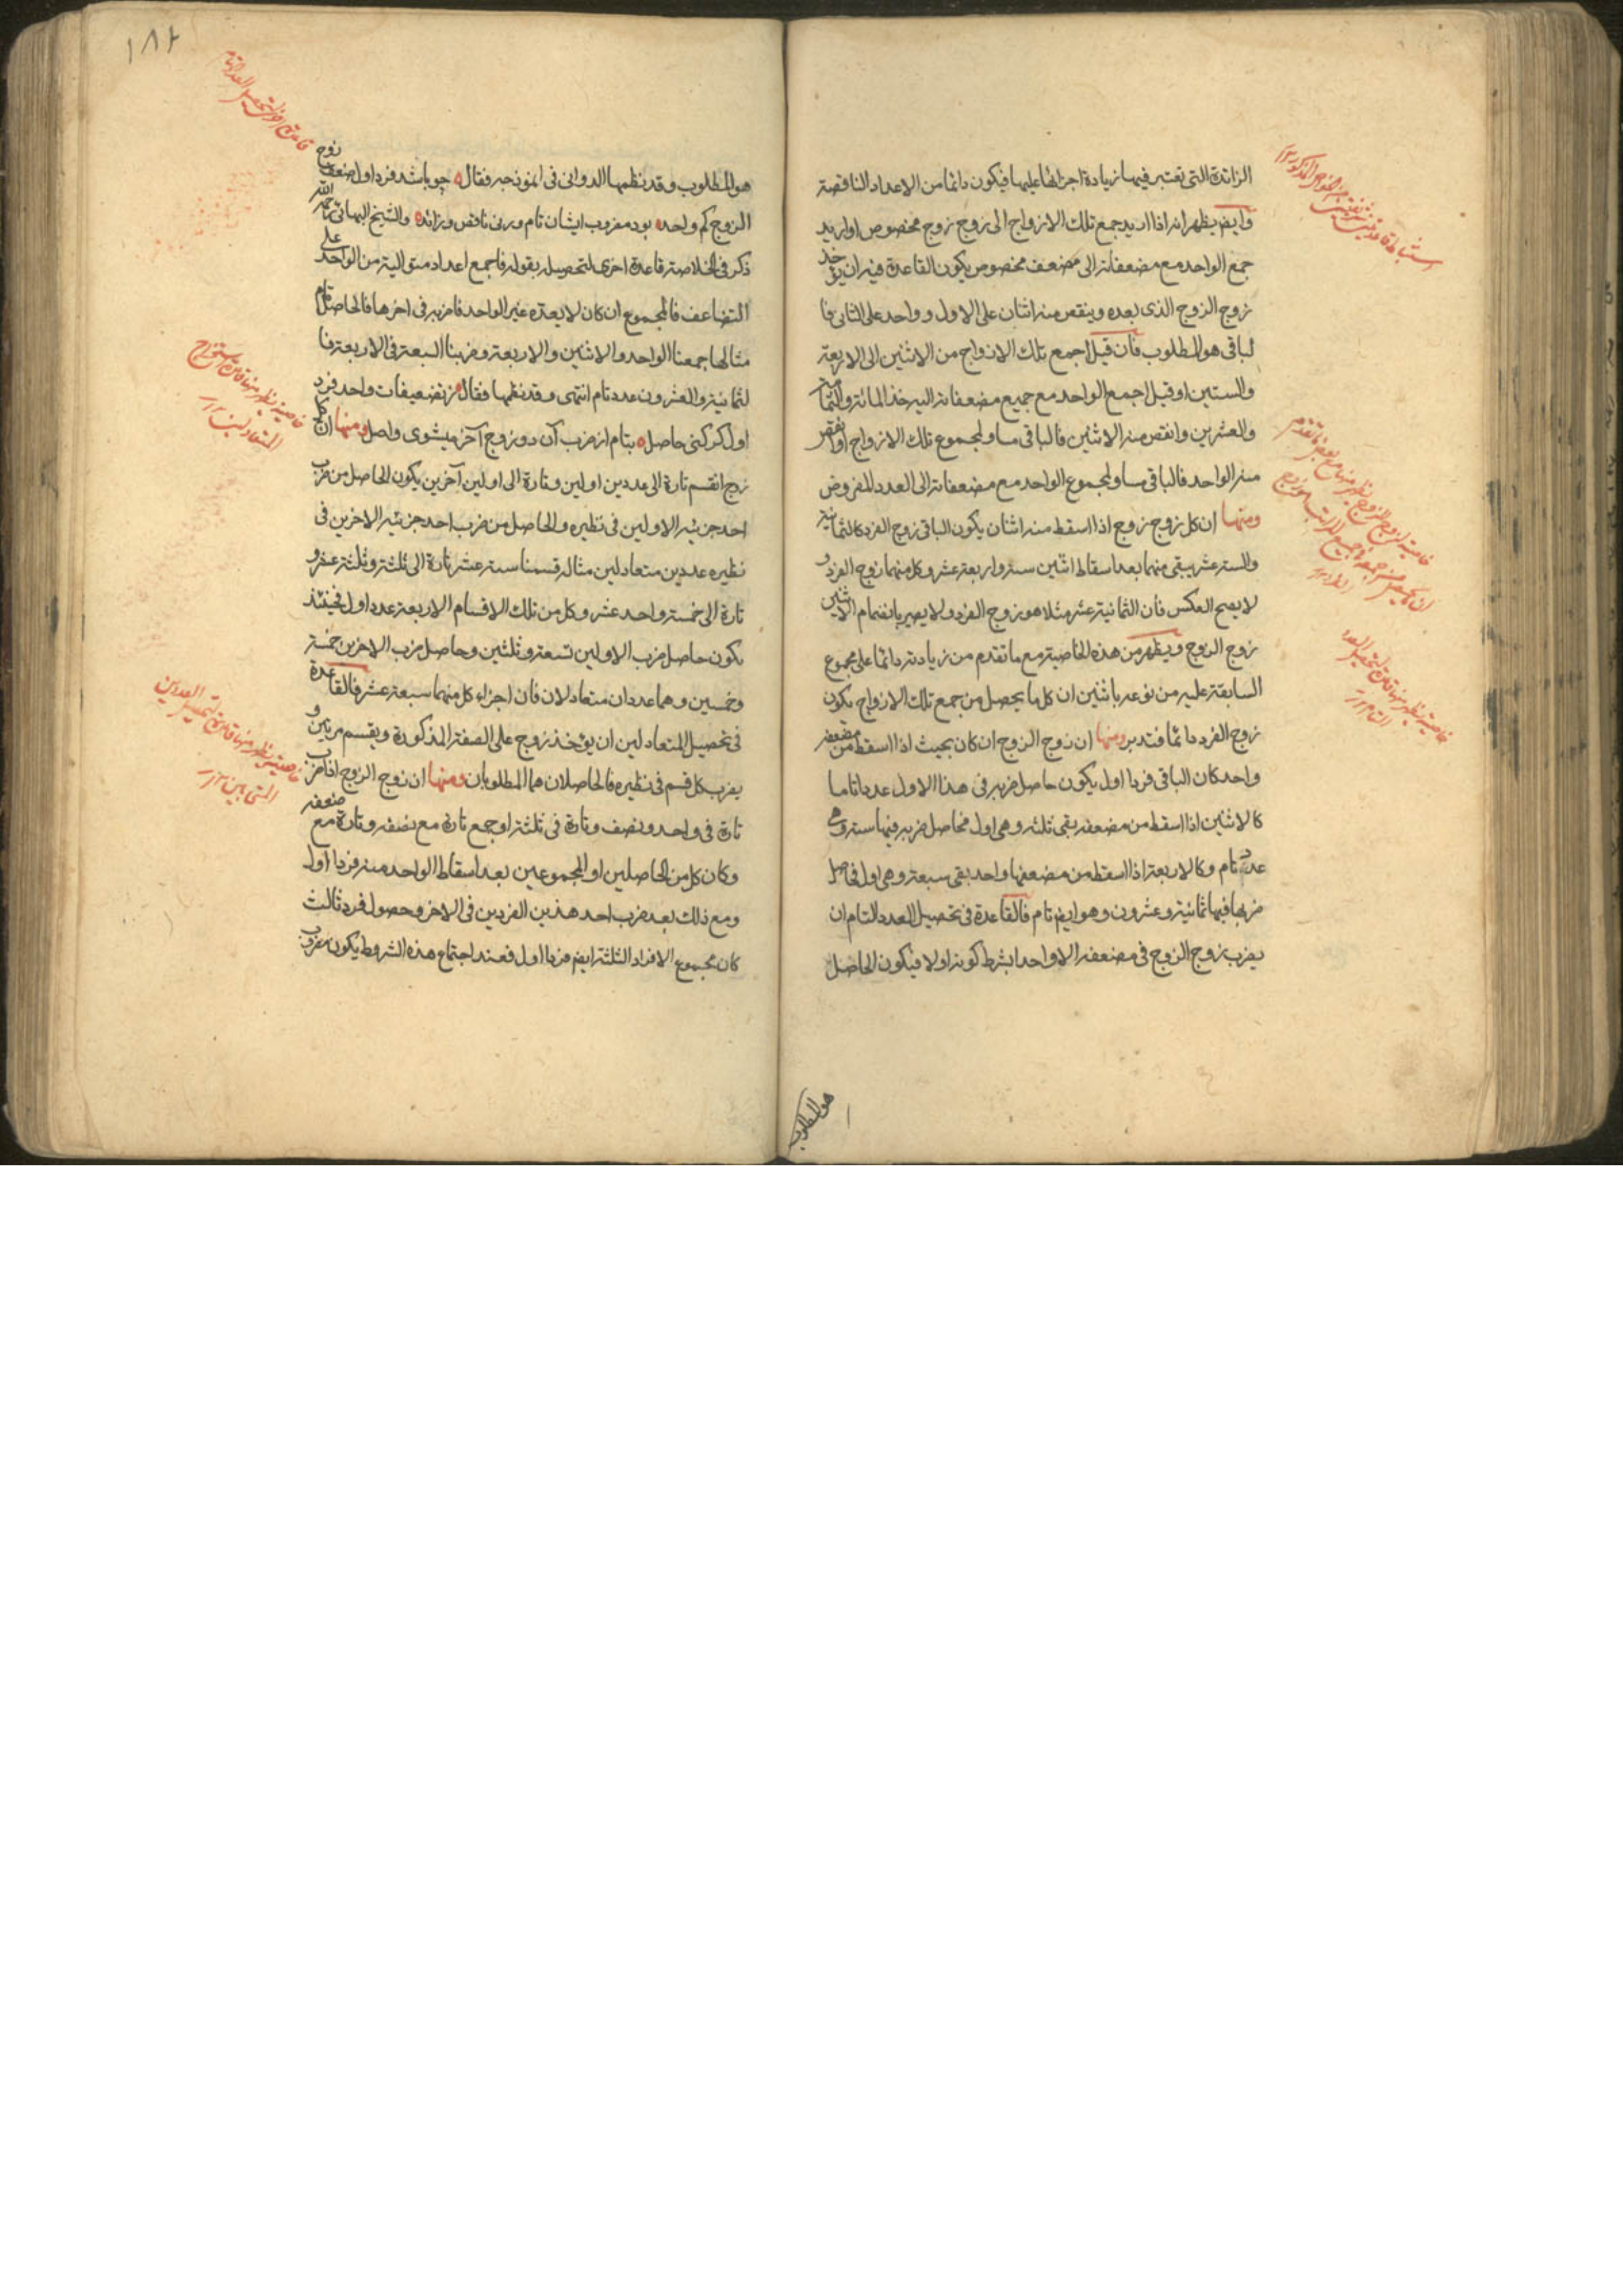 الزائدة التى تعتبر فيها زيادة اجزائها عليها فيكون دائما من الاعداد الناقصة
وايضا يظهر انه اذا اريد جمع تلك الازواج الى زوج زوج مخصوص او اريد
جمع الواحد مع مضعفاته الى مضعف مخصوص يكون القاعدة فيه ان يؤخذ
زوج الزوج الذى بعده وينقص منه اثنان على الاول وواحد على الثانى فا
لباقى هو المطلوب فان قيل اجمع تلك الازواج من الاثنين الى الاربعة
والستين او قيل اجمع الواحد مع جميع مضعفاته اليه خذ المائة والثمانية
والعشرين وانقص منه الاثنين فالباقى مساو لمجموع تلك الازواج او انقص
منه الواحد فالباقى مساو لمجموع الواحد مع مضعفاته الى العدد المفروض
ومنها ان كل زوج زوج اذا اسقط منه اثنان يكون الباقى زوج الفرد كالثمانية
والستة عشر يبقى منهما بعد اسقاط اثنين ستة واربعة عشر وكل منهما زوج الفرد و
لا يصح العكس فان الثمانية عشر مثلا هو زوج الفرد ولا يصير بانضمام الاثنين
زوج الزوج ويظهر من هذه الخاصية مع ما تقدم من زيادته دائما على مجموع
السابقة عليه من نوعه باثنين ان كل ما يحصل من جمع تلك الازواج يكون
زوج الفرد دائما فتدبر ومنها ان زوج الزوج ان كان بحيث اذا اسقط من مضعفه
واحد كان الباقى فردا اول يكون حاصل ضربه فى هذا الاول عددا تاما
كالاثنين اذا اسقط من مضعفه بقى ثلثة وهى اول فحاصل ضربه فيها ستة وهى
عدد تام وكالاربعة اذا اسقط من مضعفها واحد بقى سبعة وهى اول فحاصل
ضربها فيها ثمانية وعشرون وهو ايضا تام فالقاعدة فى تحصيل العدد التام ان
يضرب زوج الزوج فى مضعفه الا واحدا بشرط كونه اولا فيكون الحاصل
هو المطلوب
١٨٢
هو المطلوب وقد نظمها الدوانى فى انموذجه فقال چو باشد فرد اول ضعف زوج
الزوج كم واحد بود مضروب ايشان تام ورنى ناقص وزائد والشيخ البهائى رحمه الله
ذكر فى الخلاصة قاعدة اخرى لتحصيله بقوله فاجمع اعداد متوالية من الواحد على
التضاعف فالمجموع ان كان لا يعده غير الواحد فاضربه فى اخرها فالحاصل تام
مثالها جمعنا الواحد والاثنين والاربعة وضربنا السبعة فى الاربعة فا
لثمانية والعشرون عدد تام انتهى وقد نظمها فقال ز تضعيفات واحد فرد
اول كر كنى حاصل بتام از ضرب آن در زوج آخر ميشوى واصل ومنها ان كل
زوج انقسم تارة الى عددين اولين وتارة الى اولين آخرين يكون الحاصل من ضرب
احد جزئيه الاولين فى نظيره والحاصل من ضرب احد جزئيه الاخرين فى
نظيره عددين متعادلين مثاله قسمنا ستة عشر تارة الى ثلثة وثلثة عشر و
تارة الى خمسة واحد عشر وكل من تلك الاقسام الاربعة عدد اول فحينئذ
يكون حاصل ضرب الاولين تسعة وثلثين وحاصل ضرب الاخرين خمسة
وخمسين وهما عددان متعادلان فان اجزاء كل منهما سبعة عشر فالقاعدة
فى تحصيل المتعادلين ان يؤخذ زوج على الصفة المذكورة ويقسم مرتين و
يضرب كل قسم فى نظيره فالحاصلان هما المطلوبان ومنها ان زوج الزوج اذا ضرب
تارة فى واحد ونصف وتارة فى ثلثة او جمع تارة مع نصفه وتارة مع ضعفه
وكان كل من الحاصلين او المجموعين بعد اسقاط الواحد منه فردا اول
ومع ذلك بعد ضرب احد هذين الفردين فى الاخر وحصول فرد ثالث
كان مجموع الافراد الثلثة ايضا فردا اول فعند اجتماع هذه الشروط يكون مضروب